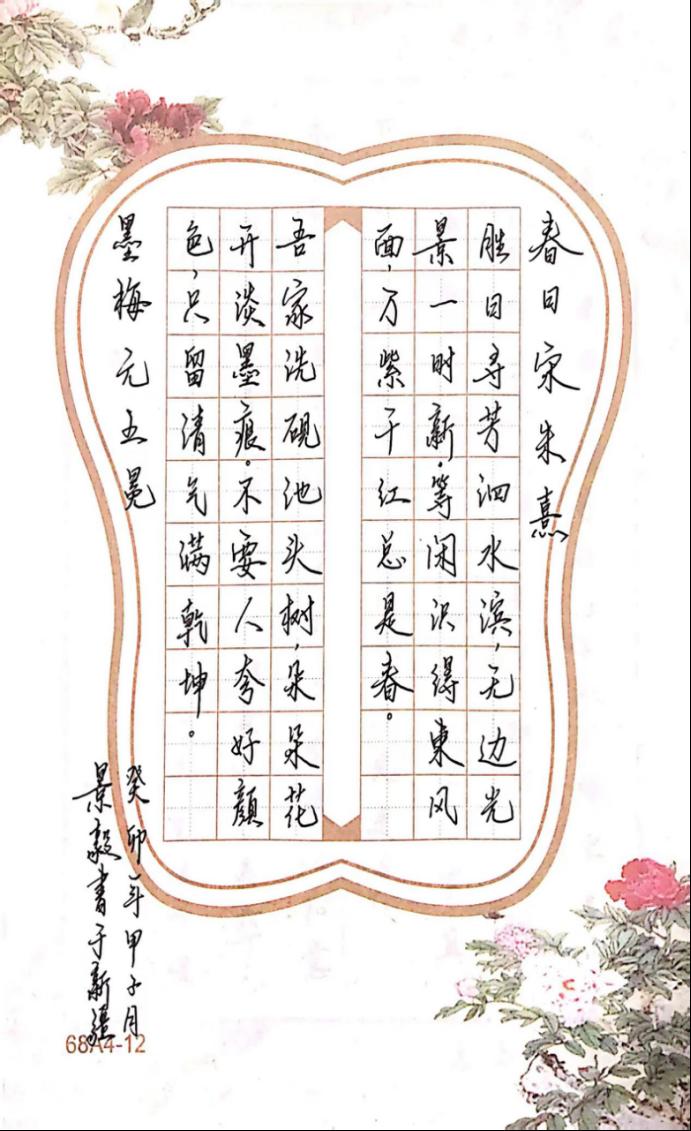 春日宋朱熹
胜日寻芳泗水滨，无边光
景一时新。等闲识得東风
面，万紫千红总是春。
吾家洗砚池头树，朵朵花
开淡墨痕。不要人夸好顔
色，只留清气满乾坤。
墨梅元王冕
癸卯年甲子月
景毅書于新疆
68A4-12